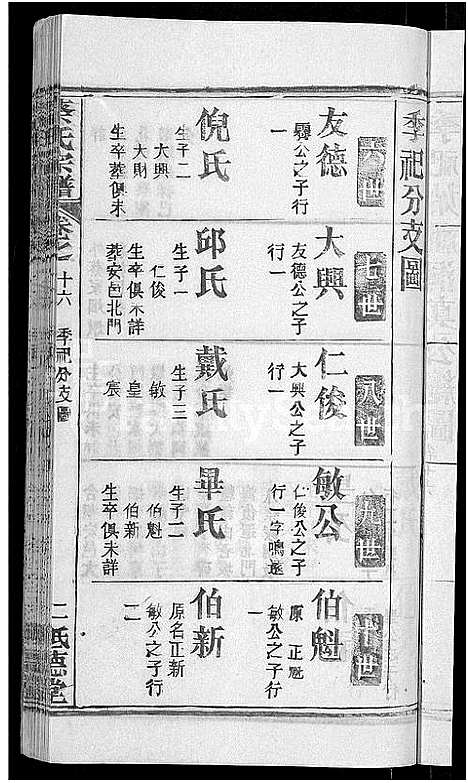 季祀分支圖
六世
友德
驥公之子行
一
倪氏
生子二
大興
大財
生卒葬俱未
七世
大興
友德公之子
行一
邱氏
生子一
仁俊
生卒俱未詳
葬安邑北門
八世
仁俊
大興公之子
行一
戴氏
生子三
敏
皇
宸
九世
敏公
仁俊公之子
行一字鳴遠
畢氏
生子二
伯魁
伯新
生卒俱未詳
十世
伯魁
原 正魁
敏公之子行
一
伯新
原名正新
敏公之子行
二
蔡氏宗譜
卷之 十六 季祀分支圖
二 德堂